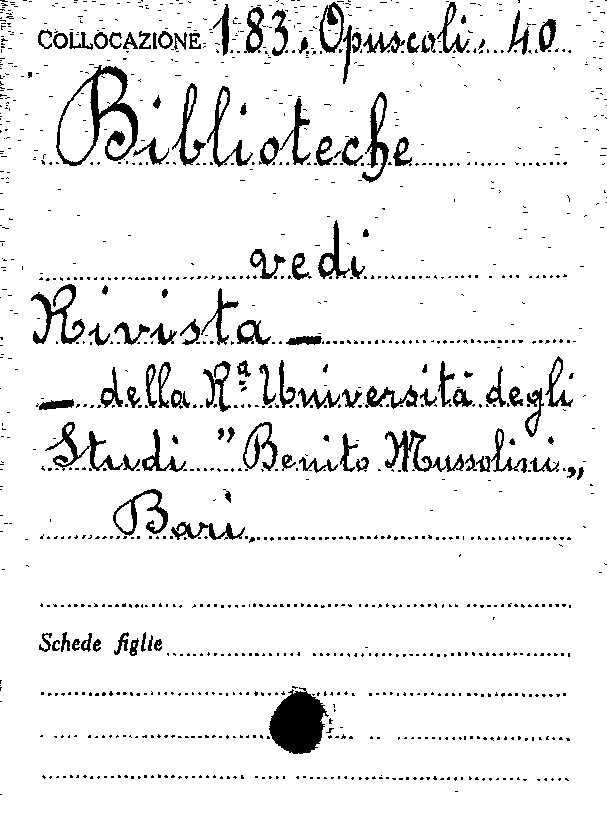 COLLOCAZIONE 183. Opuscoli. 40
Biblioteche
vedi
Rivista –
– della Rª Università degli
Studi " Benito Mussolini „
Bari
Schede figlie